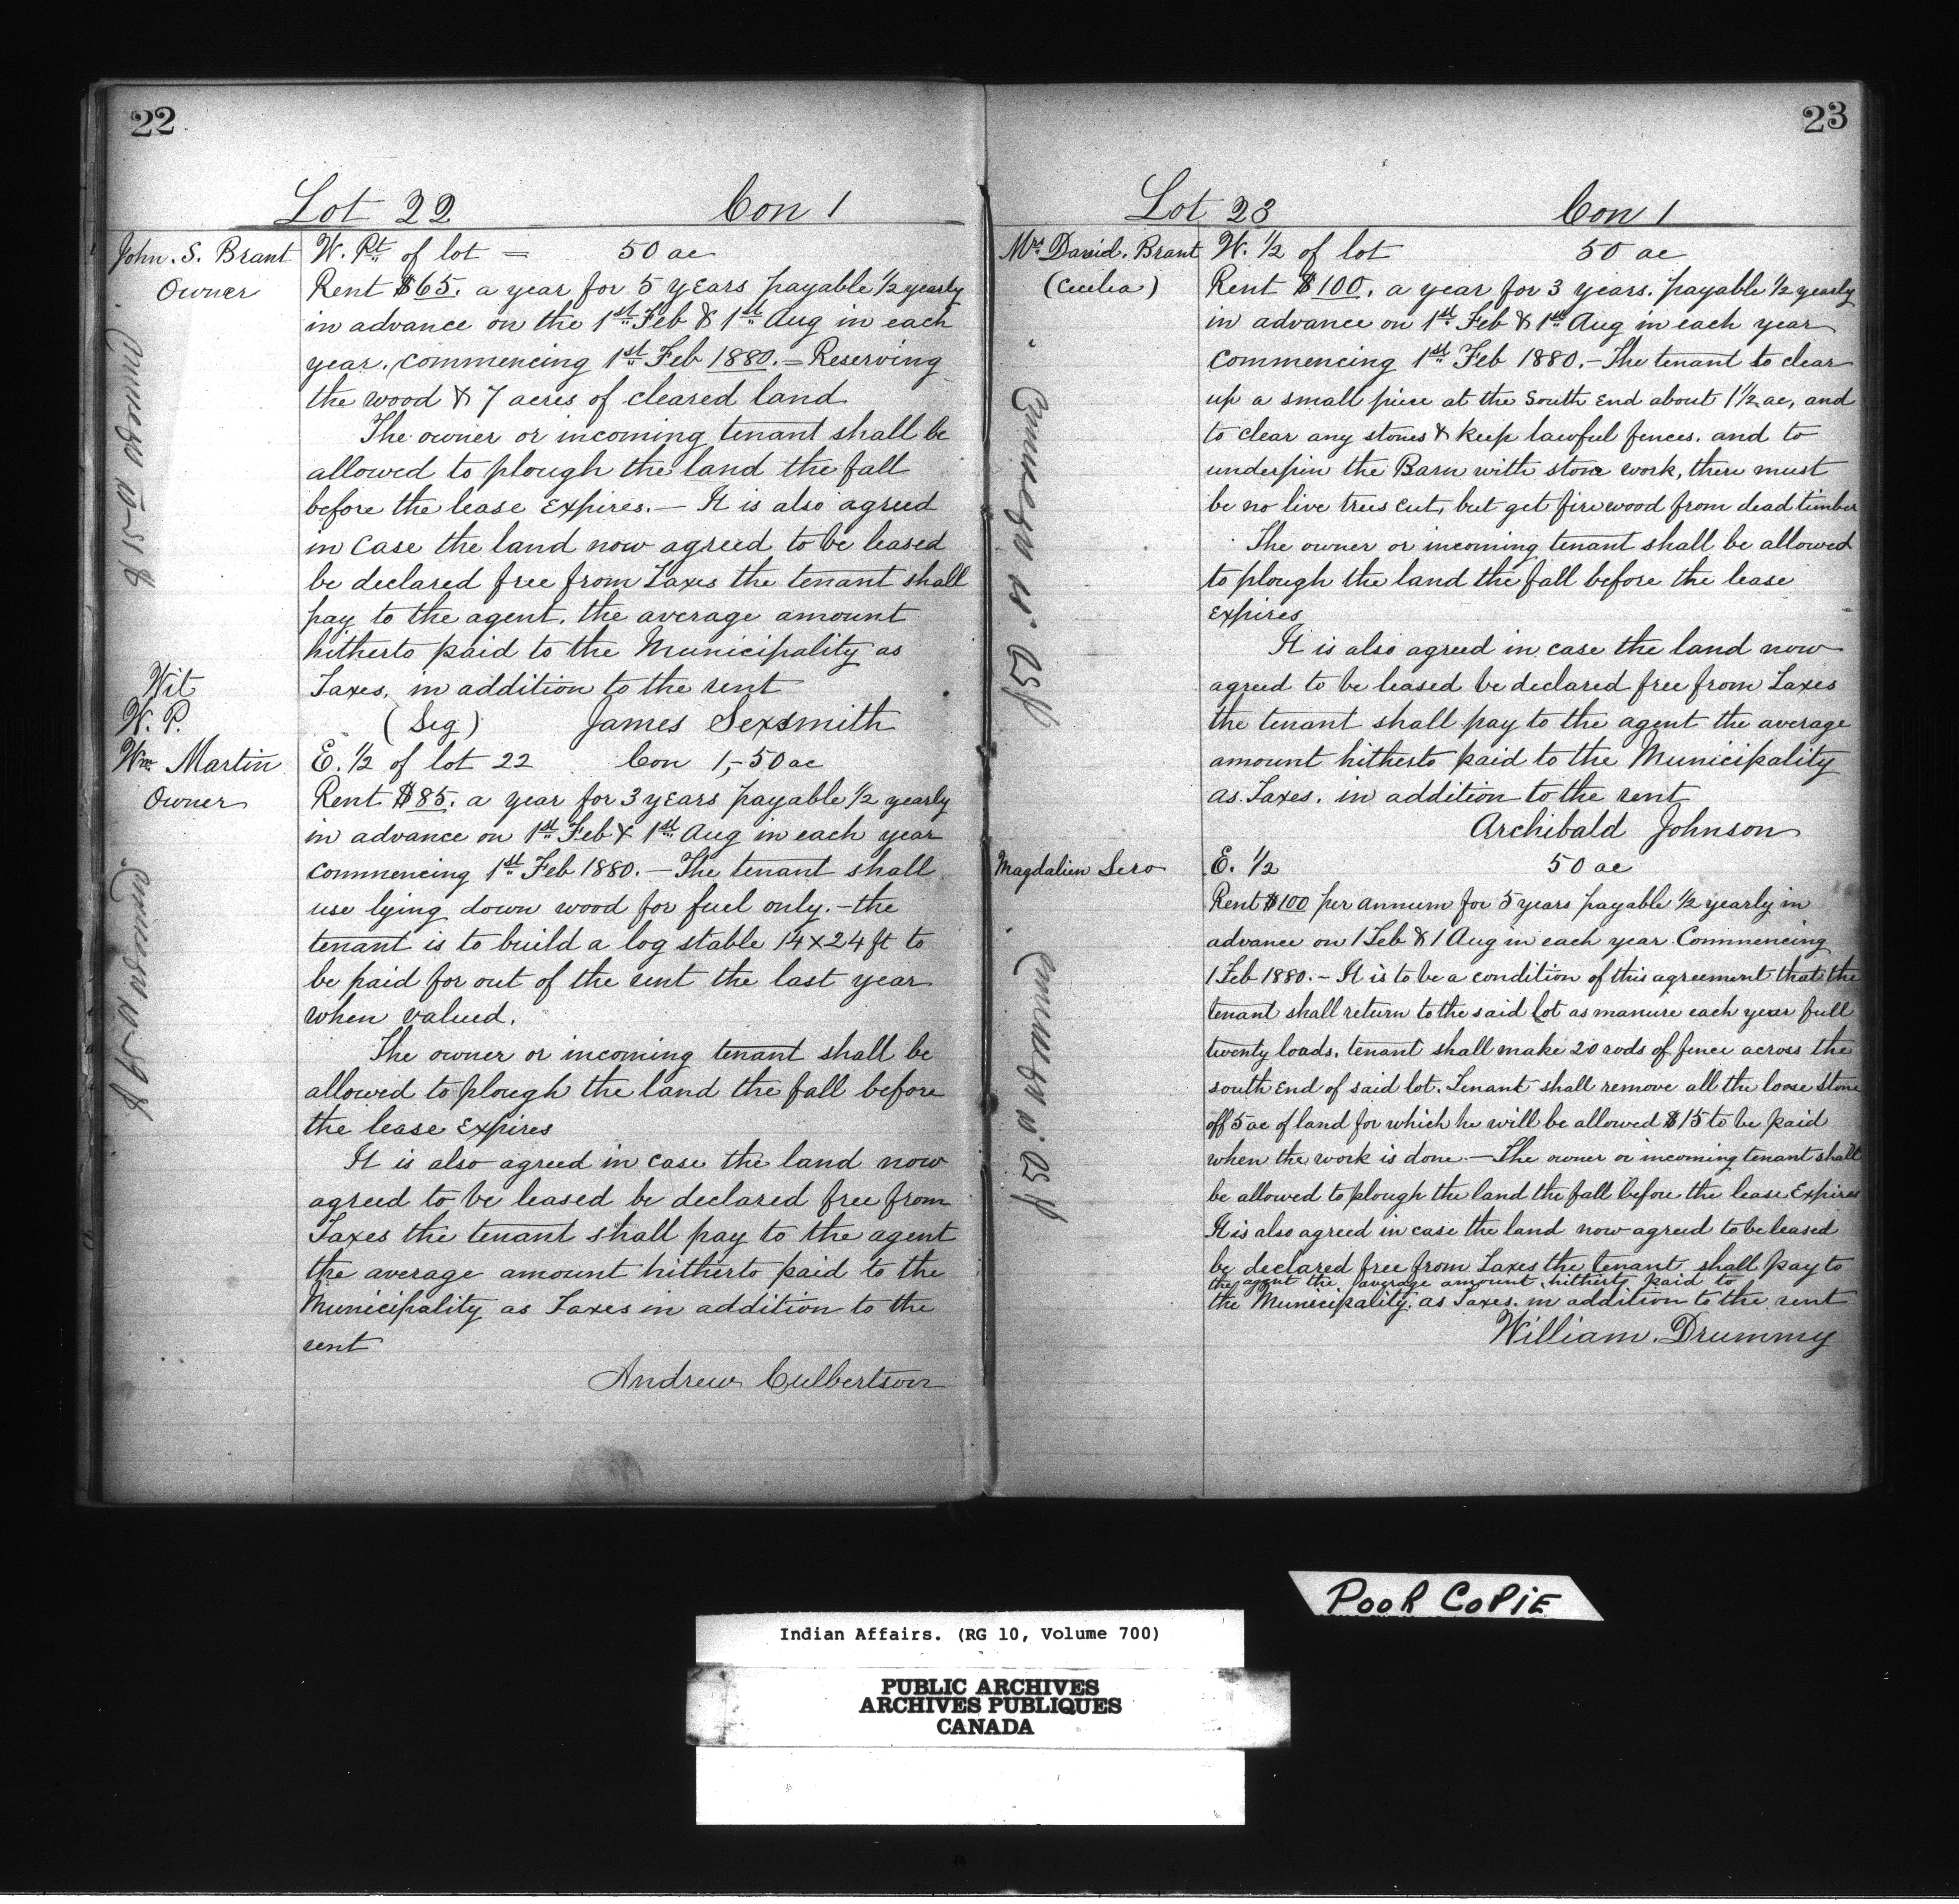 22
Lot 22 Con 1
John. S. Brant
Owner
W. Pt of lot = 50 ac
Rent $65. a year for 5 years payable 1/2 yearly
in advance on the 1st Feb & 1st Aug in each
year. commencing 1st Feb 1880. = Reserving
the wood & 7 acres of cleared land
The owner or incoming tenant shall be
allowed to plough the land the fall
before the lease expires. — It is also agreed
in case the land now agreed to be leased
be declared free from Taxes the tenant shall
pay to the agent. the average amount
hitherto paid to the Municipality as
Taxes, in addition to the rent
Wit
W. P.
(Sig) James Sexsmith
Wm Martin
Owner
E. 1/2 of lot 22 Con 1, - 50 ac
Rent $85. a year for 3 years payable 1/2 yearly
in advance on 1st Feb & 1st Aug in each year
commencing 1st Feb 1880. — The tenant shall
use lying down wood for fuel only. - the
tenant is to build a log stable 14 x 24 ft to
be paid for out of the rent the last year
when valued.
The owner or incoming tenant shall be
allowed to plough the land the fall before
the lease expires
It is also agreed in case the land now
agreed to be leased be declared free from
Taxes the tenant shall pay to the agent
the average amount hitherto paid to the
Municipality as Taxes in addition to the
rent
Andrew Culbertson
23
Lot 23 Con 1
Mrs David. Brant
(Cecilia)
W. 1/2 of lot 50 ac
Rent $100. a year for 3 years. payable 1/2 yearly
in advance on 1st Feb & 1st Aug in each year
commencing 1st Feb 1880. - The tenant to clear
up a small piece at the South End about 1 1/2 ac, and
to clear any stones & keep lawful fences. and to
underpin the Barn with stone work, there must
be no live trees cut, but get firewood from dead timber
The owner or incoming tenant shall be allowed
to plough the land the fall before the lease
expires
It is also agreed in case the land now
agreed to be leased be declared free from Taxes
the tenant shall pay to the agent the average
amount hitherto paid to the Municipality
as Taxes. in addition to the rent
Archibald Johnson
Magdalien Sero
E. 1/2 50 ac
Rent $100 per annum for 5 years payable 1/2 yearly in
advance on 1 Feb & 1 Aug in each year Commencing
1 Feb 1880. - It is to be a condition of this agreement that the
tenant shall return to the said lot as manure each year full
twenty loads. tenant shall make 20 rods of fence across the
south End of said lot. Tenant shall remove all the loose stone
off 5 ac of land for which he will be allowed $15 to be paid
when the work is done. — The owner or incoming tenant shall
be allowed to plough the land the fall before the lease Expires
It is also agreed in case the land now agreed to be leased
be declared free from Taxes the tenant shall pay to
the agent the average amount hitherto paid to
the Municipality. as Taxes. in addition to the rent
William. Drummy
POOR COPIE
Indian Affairs. (RG 10, Volume 700)
PUBLIC ARCHIVES
ARCHIVES PUBLIQUES
CANADA